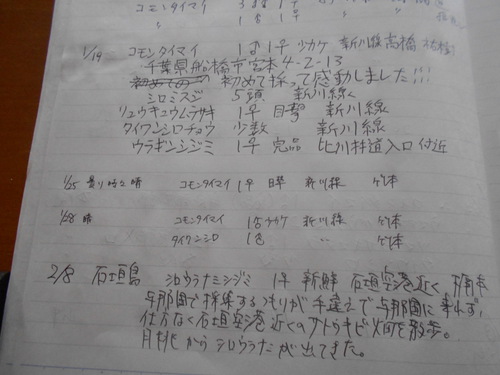 コモンタイマイ 3♂♂ 1♀ 〃 〃
〃 1♂ 1♀ 〃 〃
1/19 コモンタイマイ 1♂1♀ ツカケ 新川線 高橋
千葉県船橋市宮本4-2-13
初めて採って感動しました!!!
シロミスジ 5頭 新川線
リュウキュウムラサキ 1♀ 目撃 新川線
タイワンシロチョウ 少数 新川線
ウラギンシジミ 1♀ 完品 比川林道入口付近
1/25 曇り時々晴 コモンタイマイ 1♀ 目撃 新川線 竹本
1/28 晴 コモンタイマイ 1♂ツカケ 新川線 竹本
タイワンシロ 1♂ 〃 竹本
2/8 石垣島 シロウラナミシジミ 1♀ 新鮮 石垣空港近く
与那国で採集するつもりが手違えで与那国に来れず、
仕方なく石垣空港近くのサトウキビ畑を散歩。
月桃からシロウラナミが出てきた。